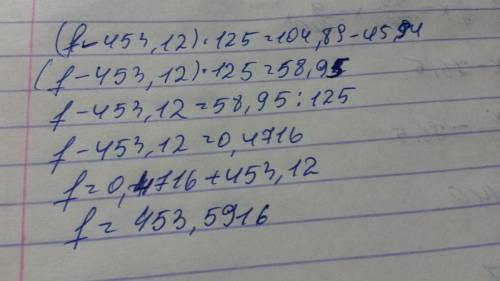 (f-453,12)·125=104,89-45,94
(f-453,12)·125=58,95
f-453,12=58,95:125
f-453,12=0,4716
f=0,4716+453,12
f=453,5916